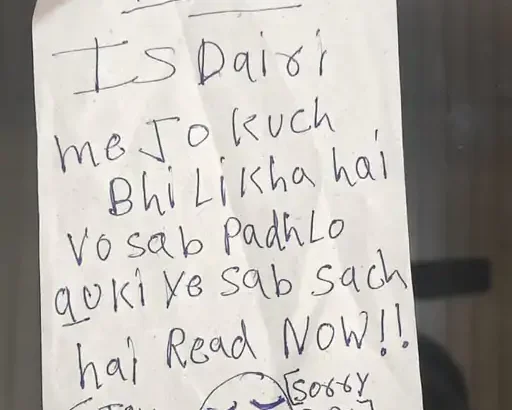 Is Dairi
me Jo kuch
Bhi Likha hai
Vo sab Padh Lo
quki ye sab sach
hai Read NOW!!
[Sorry